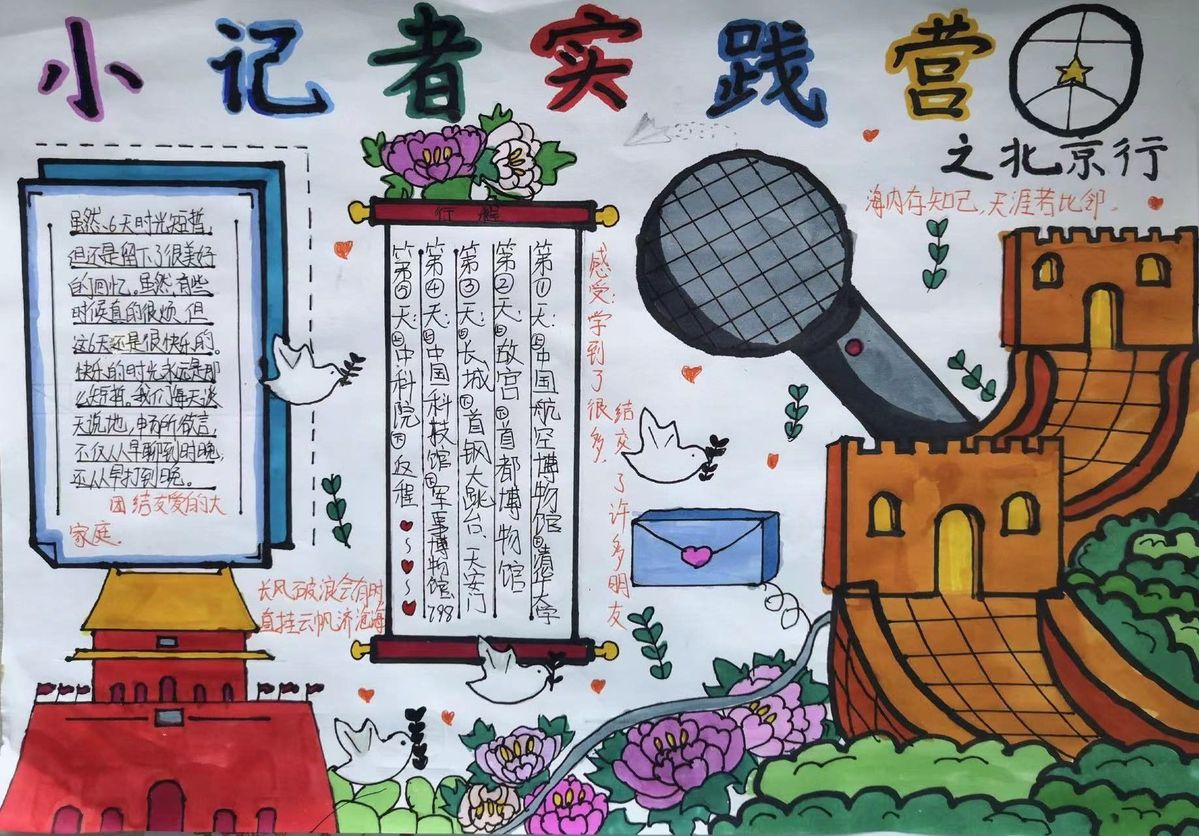 小记者实践营
之北京行
海内存知己,天涯若比邻.
虽然、6天时光短暂,
但还是留下了很美好
的回忆。虽然,有些
时候真的很烦,但
这6天还是很快乐的。
快乐的时光永远是那
么短暂。我们每天谈
天说地,申所欲言,
不仅从早聊到时晚,
还从早打到晚。
团结友爱的大
家庭.
行程
第①天:上中国航空博物馆下清华大学
第②天:上故宫下首都博物馆
第③天:上长城下首钢大跳台、天安门
第④天:上中国科技馆下军事博物馆798
第⑤天:上中科院下返程
感受:学到了很多,
结交了许多朋友
长风破浪会有时
直挂云帆济沧海